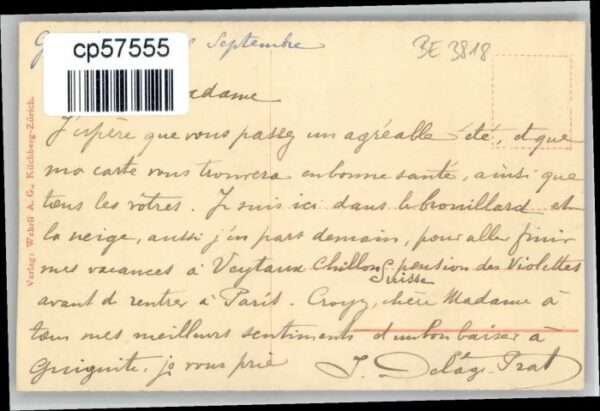 cp57555
Septembre
BE 3818
adame
J'espère que vous passez un agréable été, et que
ma carte vous trouvera en bonne santé, ainsi que
tous les vôtres. Je suis ici dans le brouillard et
la neige, aussi j'en pars demain, pour aller finir
mes vacances à Veytaux Chillon, pension des Violettes
Suisse
avant de rentrer à Paris. Croyez, chère Madame à
tous mes meilleurs sentiments d'un bon baiser à
Guiguite, je vous prie J. Delâge-Prat
Verlag: Wehrli A. G., Kilchberg-Zürich.